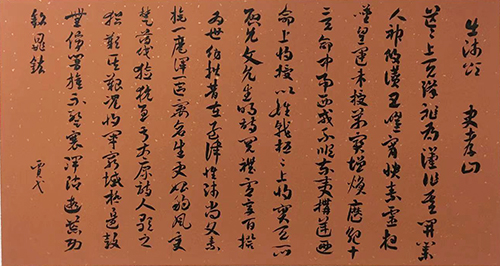 出師頌 史孝山
茫茫上天降祚爲漢作基開業
人神攸讚五曜宵映素靈夜
歎皇運來授萬寶增煥歷紀十
二天命中易西戎不順東夷構逆乃
命上將授以雄戟桓桓上將實天所
啓允文允武明詩閱禮憲章百揆
爲世作楷昔在孟津惟師尚父素
旄一麾渾一區宇蒼生更始朔風變
楚薄伐獫狁至于太原詩人歌之
猶歎其艱況我將軍窮城極邊鼓
無停響旗不蹔褰澤沾遐荒功
銘鼎鉉